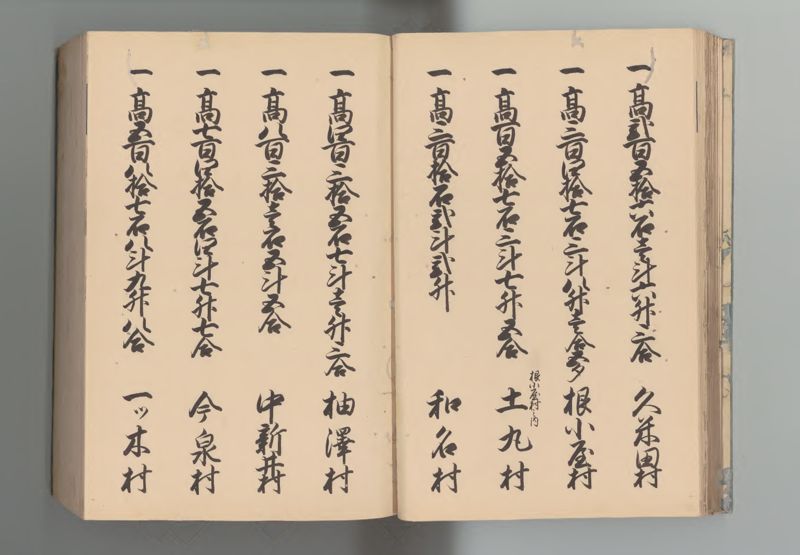 一高弐百五拾六石壱斗六升六合 久米田村
一高三百四拾七石三斗八升壱合余 根小屋村
一高百五拾七石三斗七升五合 根小屋村之内 土丸村
一高三百拾石弐斗弐升 和名村
一高四百三拾五石七斗壱升六合 柚澤村
一高八百三拾壱石五斗五合 中新井村
一高七百四拾五石四斗七升七合 今泉村
一高五百八拾七石八斗九升八合 一ッ木村